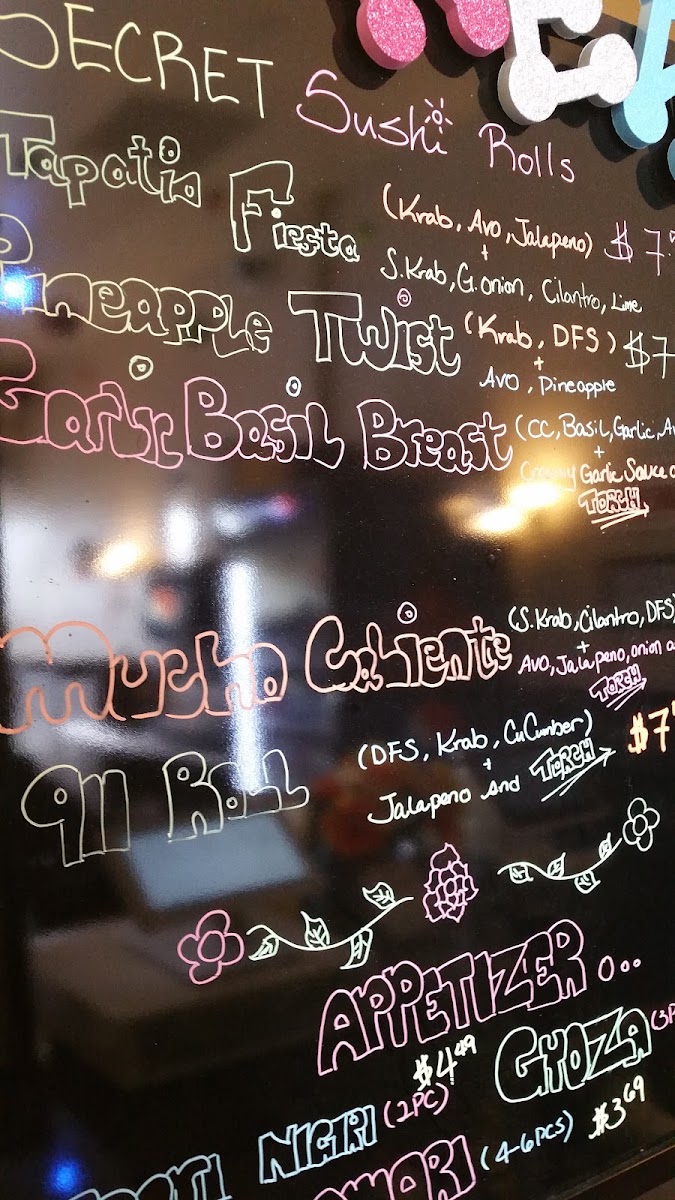 SECRET Sushi Rolls
Tapatio Fiesta (Krab, Avo, Jalapeno) $7.
+
S.Krab, G.onion, Cilantro, Lime
Pineapple Twist (Krab, DFS) $7
+
Avo, Pineapple
Garlic Basil Breast (CC, Basil, Garlic, Av
+
Creamy Garlic Sauce
TORCH
Mucho Caliente (S.Krab, Cilantro, DFS)
+
Avo, Jalapeno, onion
TORCH
911 ROLL (DFS, Krab, CuCumber) $7
+
Jalapeno and TORCH
APPETIZER...
$4.49 GYOZA (3P
NIGIRI (2PC)
(4-6PCS) $3.69